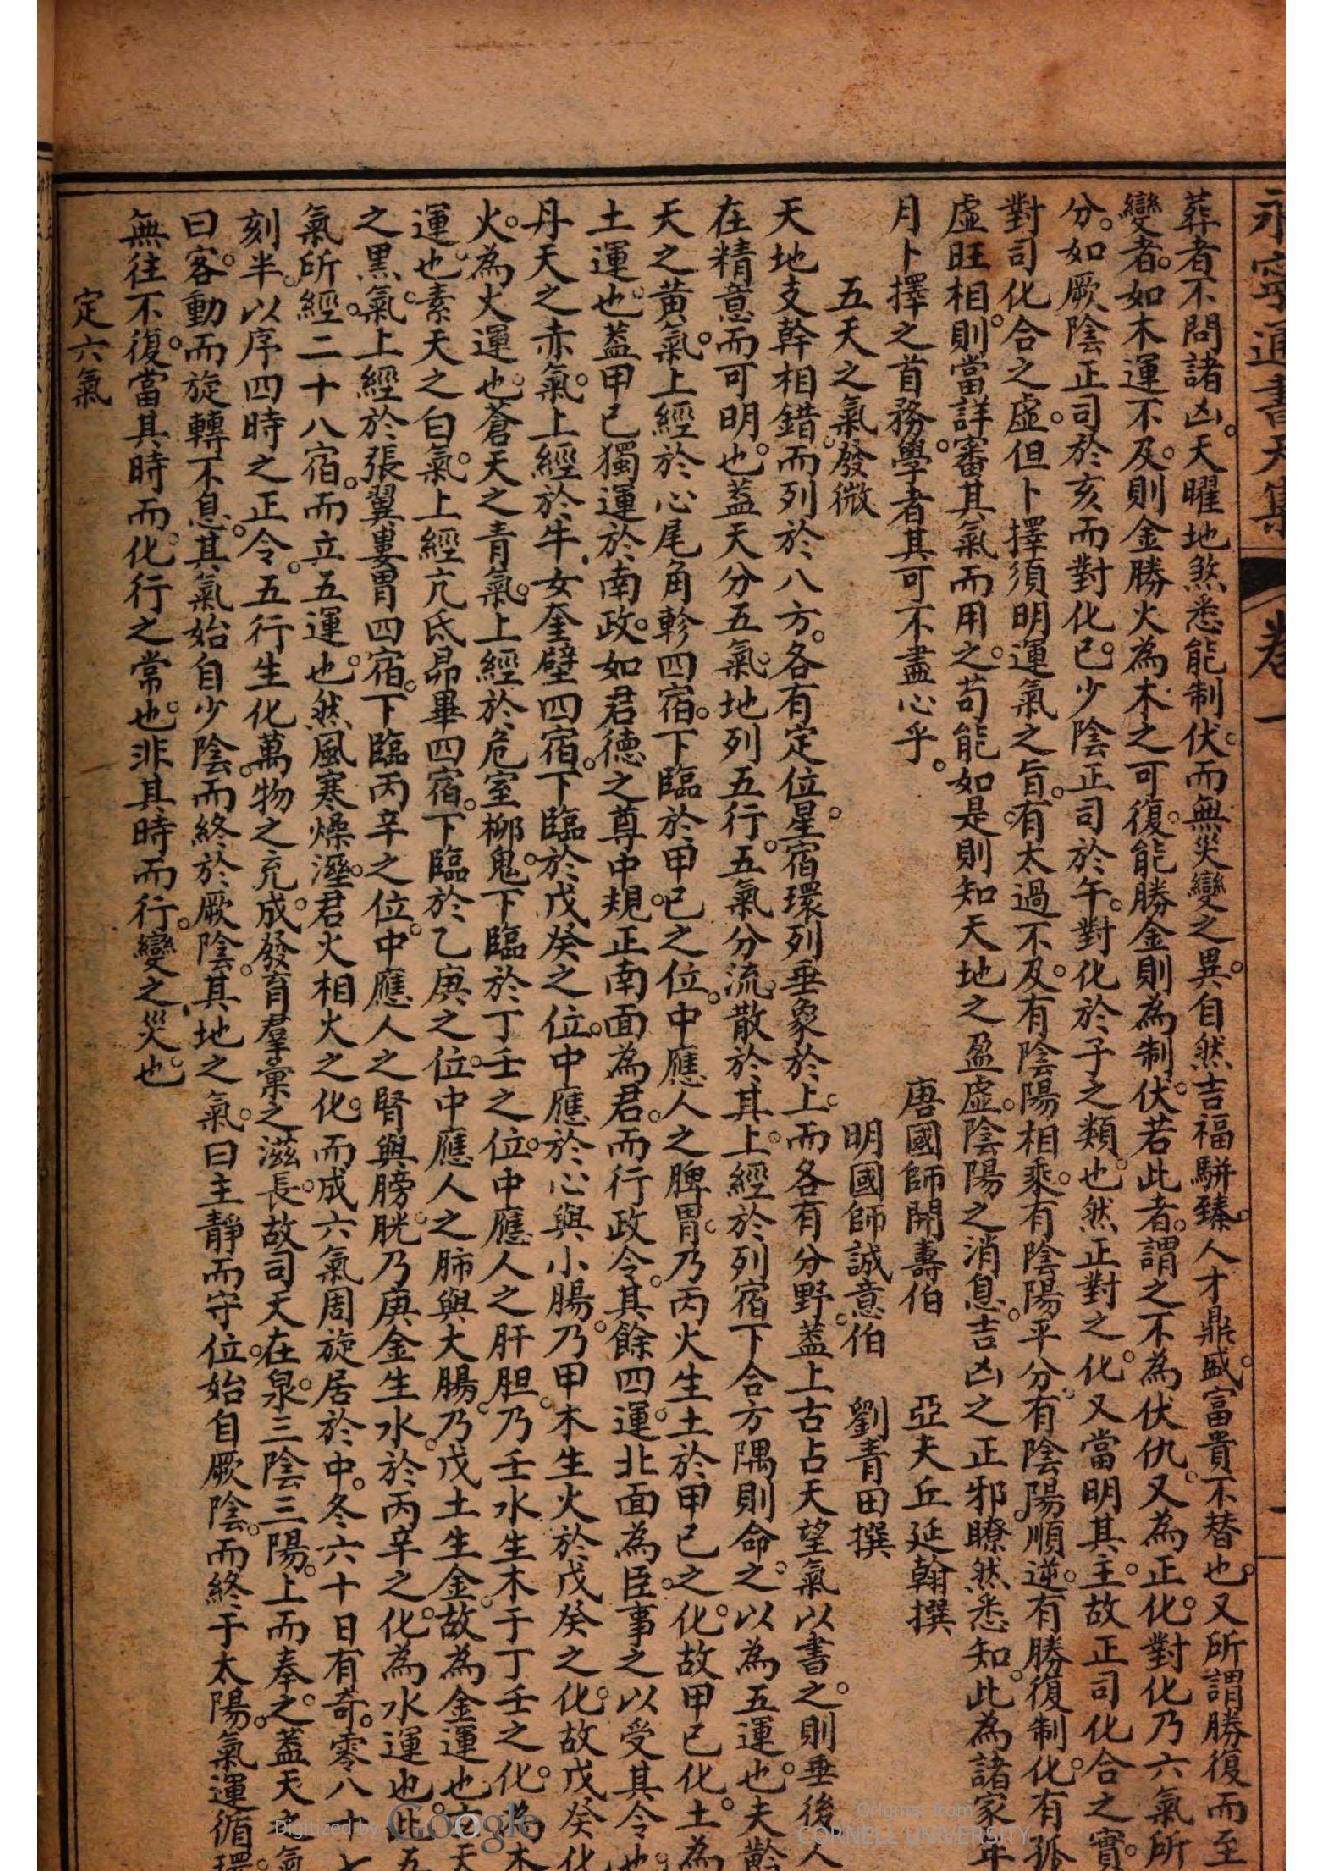 永寧通書天集 卷一
葬者不問諸凶。天曜地煞悉能制伏。而無災變之異。自然吉福駢臻。人才鼎盛。富貴不替也。又所謂勝復而至
變者。如木運不及。則金勝火為木之可復。能勝金則為制伏。若此者。謂之不為伏仇。又為正化。對化乃六氣所
分。如厥陰正司於亥。而對化巳。少陰正司於午。對化於子之類也。然正對之化。又當明其主。故正司化合之實。
對司化合之虛。但卜擇須明運氣之旨。有太過不及。有陰陽相乘。有陰陽平分。有陰陽順逆。有勝復制化。有孤
虛旺相。則當詳審其氣而用之。苟能如是。則知天地之盈虛。陰陽之消息。吉凶之正邪。瞭然悉知。此為諸家年
月卜擇之首務。學者其可不盡心乎。 唐國師開壽伯 亞夫丘延翰撰
五天之氣發微 明國師誠意伯 劉青田撰
天地支幹相錯。而列於八方。各有定位。星宿環列。垂象於上。而各有分野。蓋上古占天望氣以書之。則垂後人
在精意而可明。也蓋天分五氣。地列五行。五氣分流。散於其上。經於列宿。下合方隅。則命之。以為五運也。夫黅
天之黃氣。上經於心尾角軫四宿。下臨於甲己之位。中應人之脾胃。乃丙火生土於甲己之化。故甲己化土。為
土運也。蓋甲己獨運於南政。如君德之尊。中規正南面為君。而行政令。其餘四運。北面為臣。事之以受其令也。
丹天之赤氣。上經於牛女奎壁四宿。下臨於戊癸之位。中應於心與小腸。乃甲木生火於戊癸之化。故戊癸化
火。為火運也。蒼天之青氣。上經於危室柳鬼。下臨於丁壬之位。中應人之肝胆。乃壬水生木于丁壬之化。為木
運也。素天之白氣。上經亢氐昴畢四宿。下臨於乙庚之位。中應人之肺與大腸。乃戊土生金。故為金運也。玄天
之黑氣。上經於張翼婁胃四宿。下臨丙辛之位。中應人之腎與膀胱。乃庚金生水於丙辛之化。為水運也。此五
氣所經。二十八宿。而立五運也。然風寒燥溼。君火相火之化。而成六氣。周旋居於中。冬六十日有奇。零八十七
刻半。以序四時之正令。五行生化。萬物之充成。發育羣彙之滋長。故司天在泉。三陰三陽。上而奉之。蓋天之氣
曰客。動而旋轉不息。其氣始自少陰。而終於厥陰。其地之氣曰主。靜而守位。始自厥陰。而終于太陽。氣運循環。
無往不復。當其時而化。行之常也。非其時而行。變之災也。
定六氣
Digitized by Google
Original from
CORNELL UNIVERSITY